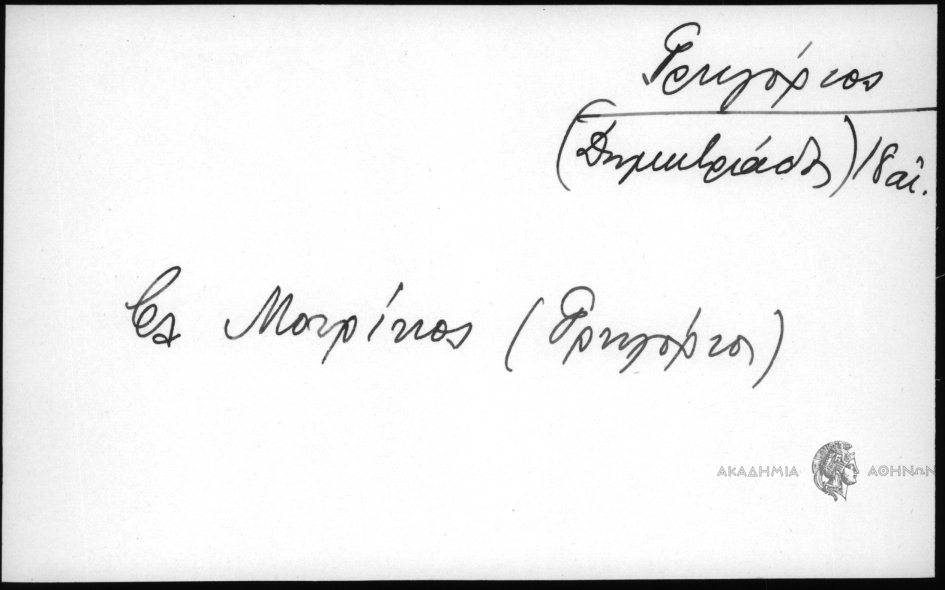 Γρηγόριος
(Δημητριάδος) 18 αἰ.
(Γρηγόριος)
ΑΚΑΔΗΜΙΑ ΑΘΗΝΩΝ